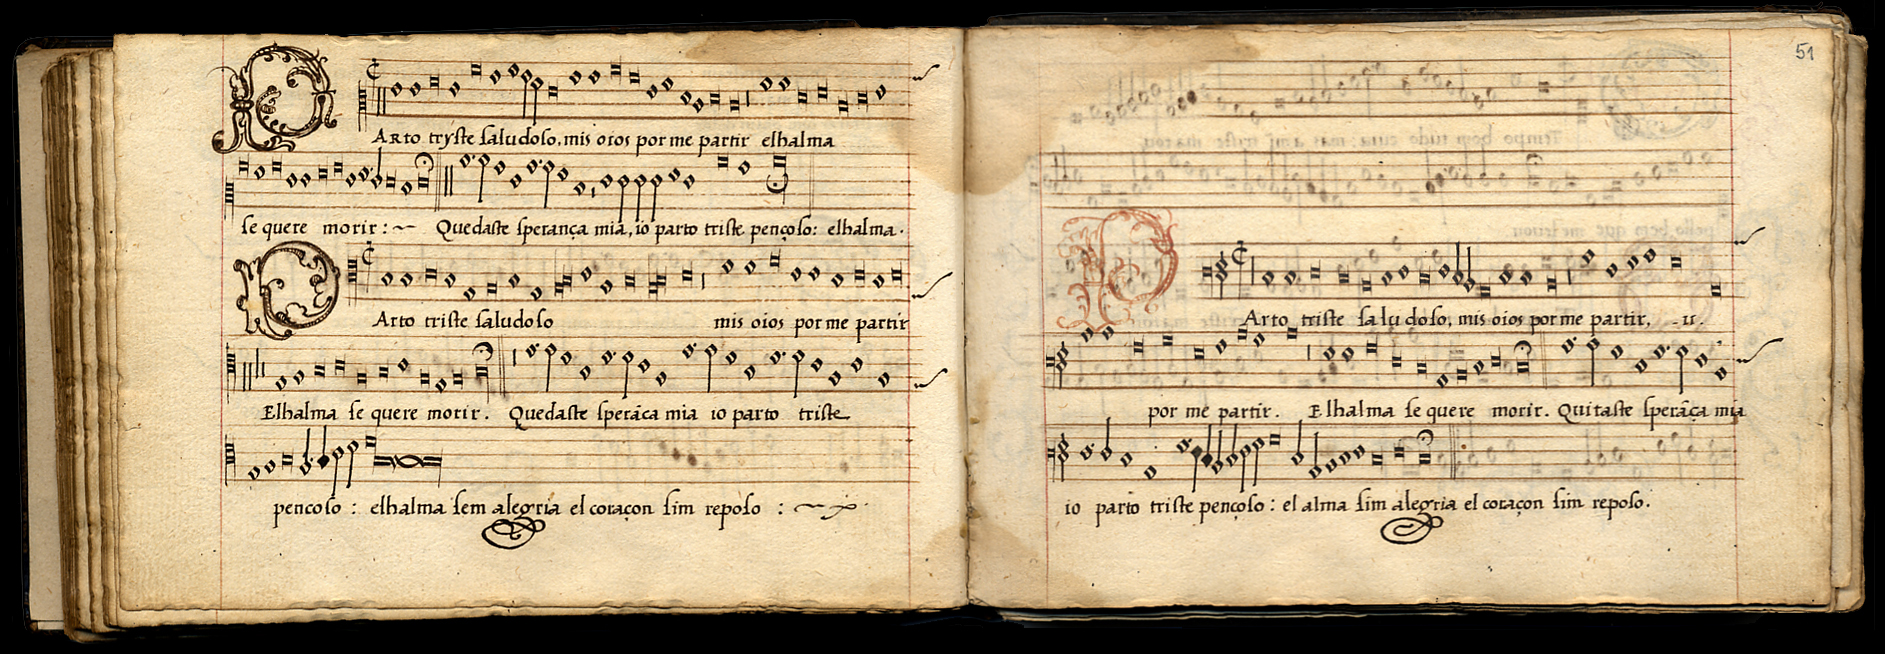 PArto tryste saludoso, mis oios por me partir elhalma
se quere morir : ~ Quedaste sperança mia, io parto triste pençoso: elhalma.
PArto triste saludoso mis oios por me partir
Elhalma se quere morir. Quedaste sperãca mia io parto triste
pencoso : elhalma sem alegria el coraçon sim reposo :
51
PArto triste saludoso, mis oios por me partir, .ij.
por me partir. Elhalma se quere morir. Quitaste sperãça mia
io parto triste pençoso : el alma sim alegria el coraçon sim reposo.